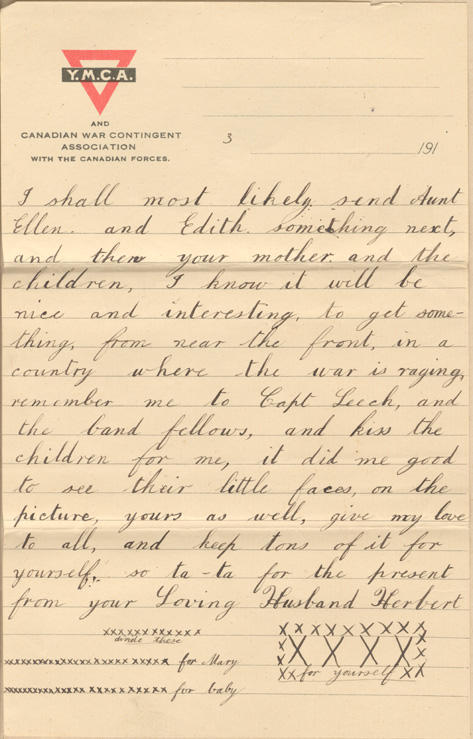 Y.M.C.A.
AND
CANADIAN WAR CONTINGENT
ASSOCIATION
WITH THE CANADIAN FORCES.
3
191
I shall most likely, send Aunt
Ellen. and Edith. something next,
and then your mother. and the
children, I know it will be
nice and interesting, to get some-
thing, from near the front, in a
country where the war is raging,
remember me to Capt Leech, and
the band fellows, and kiss the
children for me, it did me good
to see their little faces, on the
picture, yours as well, give my love
to all, and keep tons of it for
yourself, so ta-ta for the present
from your Loving Husband Herbert
xxxxxxxxxxxx
divide these
xxxxxxxxxxxxxxxxxxxx for Mary
xxxxxxxxxxxxxxxxxxxx for baby
XXXXXXXXX
XXXXXX
XX for yourself XX